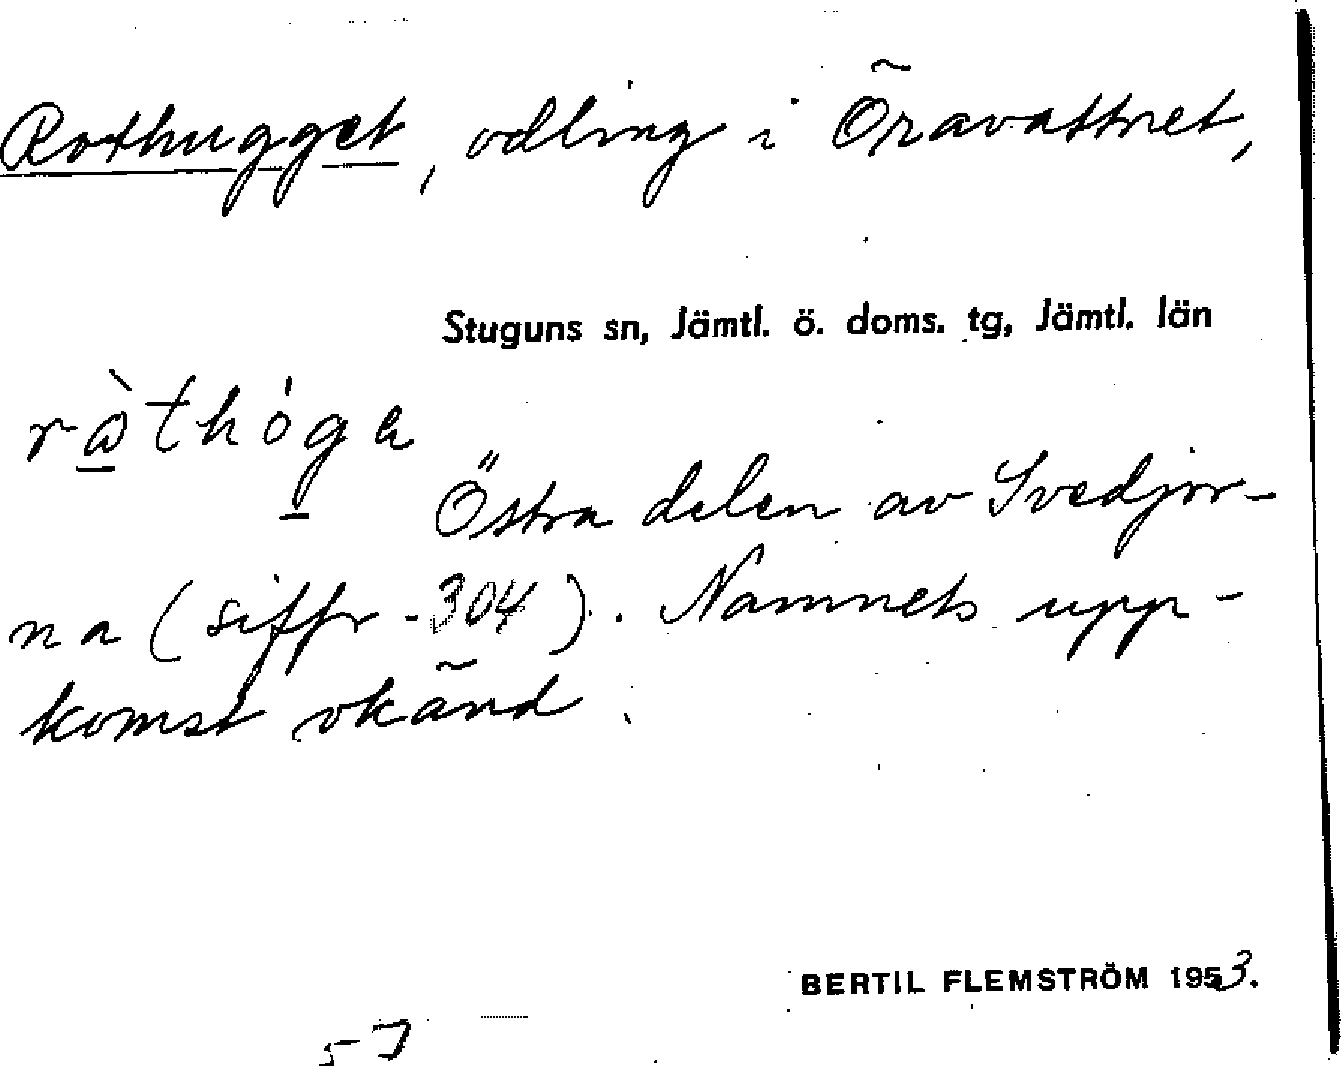 Rothugget, odling i Öravattnet,
Stuguns sn, Jämtl. ö. doms. tg, Jämtl. län
Östra delen av Svedjor-
na (siffr. 304). Namnets upp-
komst okänd.
BERTIL FLEMSTRÖM 1953.